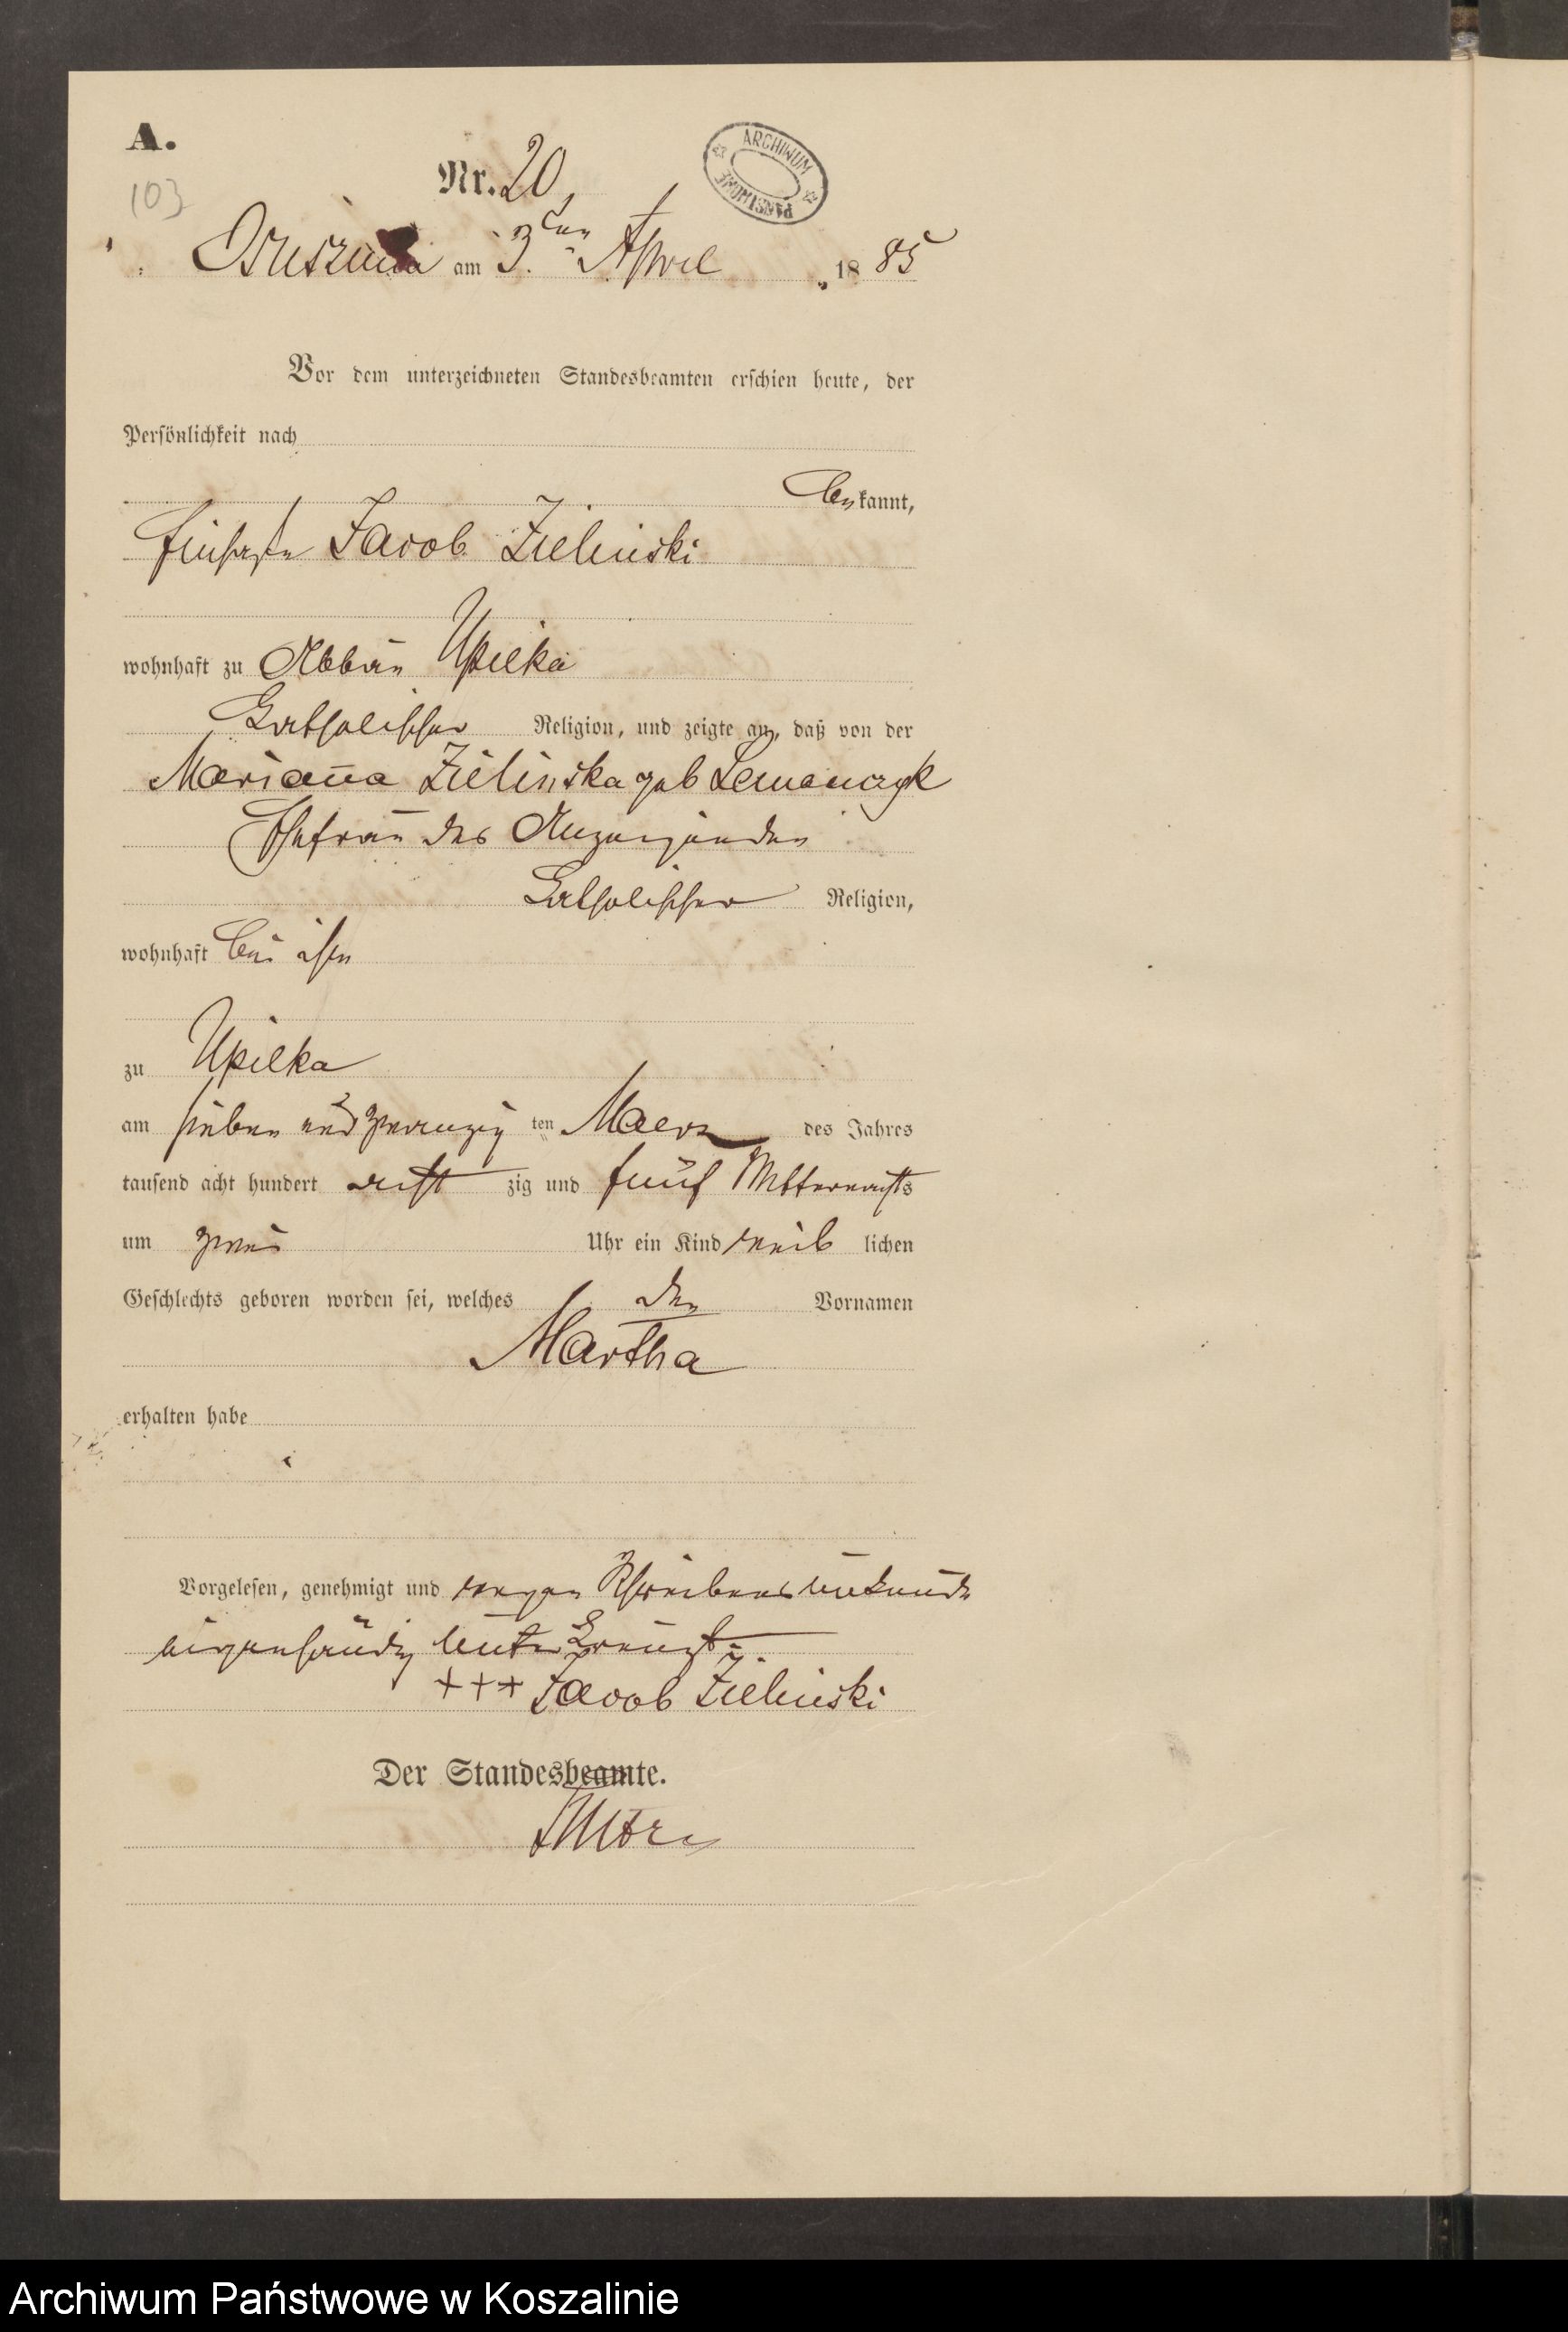 A.
103
Nr. 20
ARCHIWUM PAŃSTWOWE
am 3ten April 1885
Vor dem unterzeichneten Standesbeamten erschien heute, der
Persönlichkeit nach
bekannt,
Jacob Zielinski
wohnhaft zu Abbau Upilka
katholischer Religion, und zeigte an, daß von der
Marianna Zielinska geb Lemanczyk
Ehefrau des Anzeigenden
katholischer Religion,
wohnhaft bei ihm
zu Upilka
am sieben und zwanzig ten Maerz des Jahres
tausend acht hundert acht zig und fünf Mitternachts
um zwei Uhr ein Kind weib lichen
Geschlechts geboren worden sei, welches den Vornamen
Martha
erhalten habe
Vorgelesen, genehmigt und wegen Schreibensunkunde
eigenhändig unterkreuzt.
+++ Jacob Zielinski
Der Standesbeamte.
Archiwum Państwowe w Koszalinie